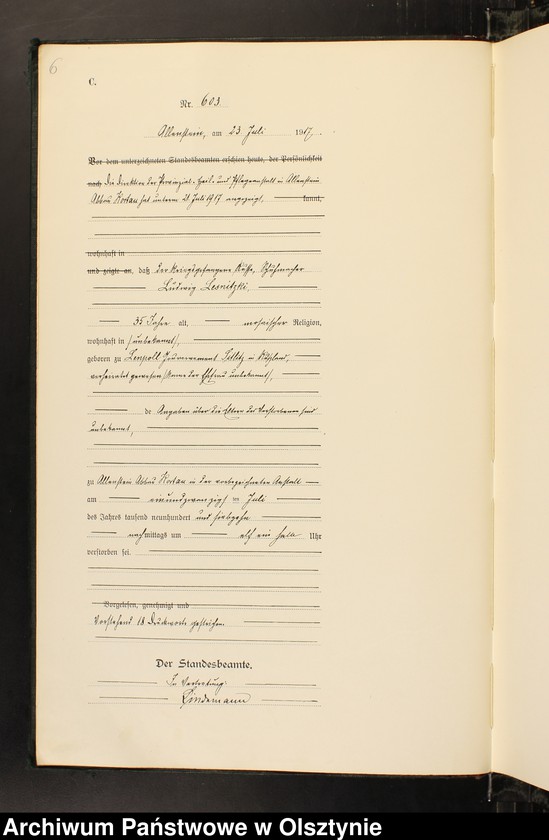 6
C.
Nr. 603.
Allenstein, am 23 Juli 1917.
Vor dem unterzeichneten Standesbeamten erschien heute, der Persönlichkeit
nach Die Direktion der Provinzial-Heil- und Pflegeanstalt in Allenstein
Abbau Kortau hat unterm 21 Juli 1917 angezeigt, kannt,
wohnhaft in
und zeigte an, daß der kriegsgefangene Russe, Schuhmacher
Ludwig Lesnitzki,
35 Jahre alt, mosaischer Religion,
wohnhaft in (unbekannt),
geboren zu Gouvernement in Rußland,
verheiratet gewesen (Name der Ehefrau unbekannt),
de Angaben über die Eltern des Verstorbenen sind
unbekannt,
zu Allenstein Abbau Kortau in der vorbezeichneten Anstalt
am einundzwanzigsten Juli
des Jahres tausend neunhundert und siebzehn
nachmittags um elf ein halb Uhr
verstorben sei.
Vorgelesen, genehmigt und
Vorstehend 18 Druckworte gestrichen.
Der Standesbeamte.
In Vertretung
Lindemann
Archiwum Państwowe w Olsztynie